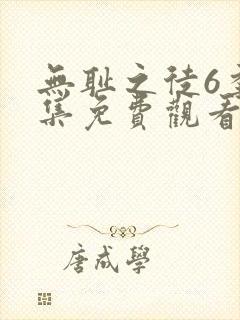 無耻之徒6
集免費觀看
唐成學